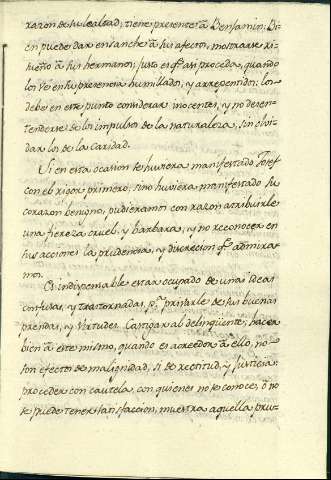 razon de su lealtad; tiene presente à Benjamin: Bi-
en, puede dar ensanche à su afecto, mostrarse ri-
sueño à sus hermanos; justo es q.e asi proceda, quando
los vè en su presencia humillados, y arrepentidos; los
debe en este punto considerar inocentes, y no desen-
tenderse de los impulsos de la naturaleza, sin olvi-
dar los de la caridad.
Si en esta ocasion se huviera manifestado Josef
con el rigor primero, sino huviera manifestado su
corazon benigno, pudieramos con razon atribuirle
una fiereza cruel, y barbara, y no reconocer en
sus acciones la prudencia, y discrecion q.e admira-
mos.
Es indispensable estar ocupado de unas ideas
confusas, y trastornadas, p.a privarle de sus buenas
prendas, y virtudes. Castigar al delinqüente; hacer
bien à este mismo, quando es acreedor à ello, no
son efectos de malignidad, si de rectitud, y justicia:
proceder con cautela, con quienes no se conoce, ò no
se puede tener satisfaccion, muestra aquella pru-